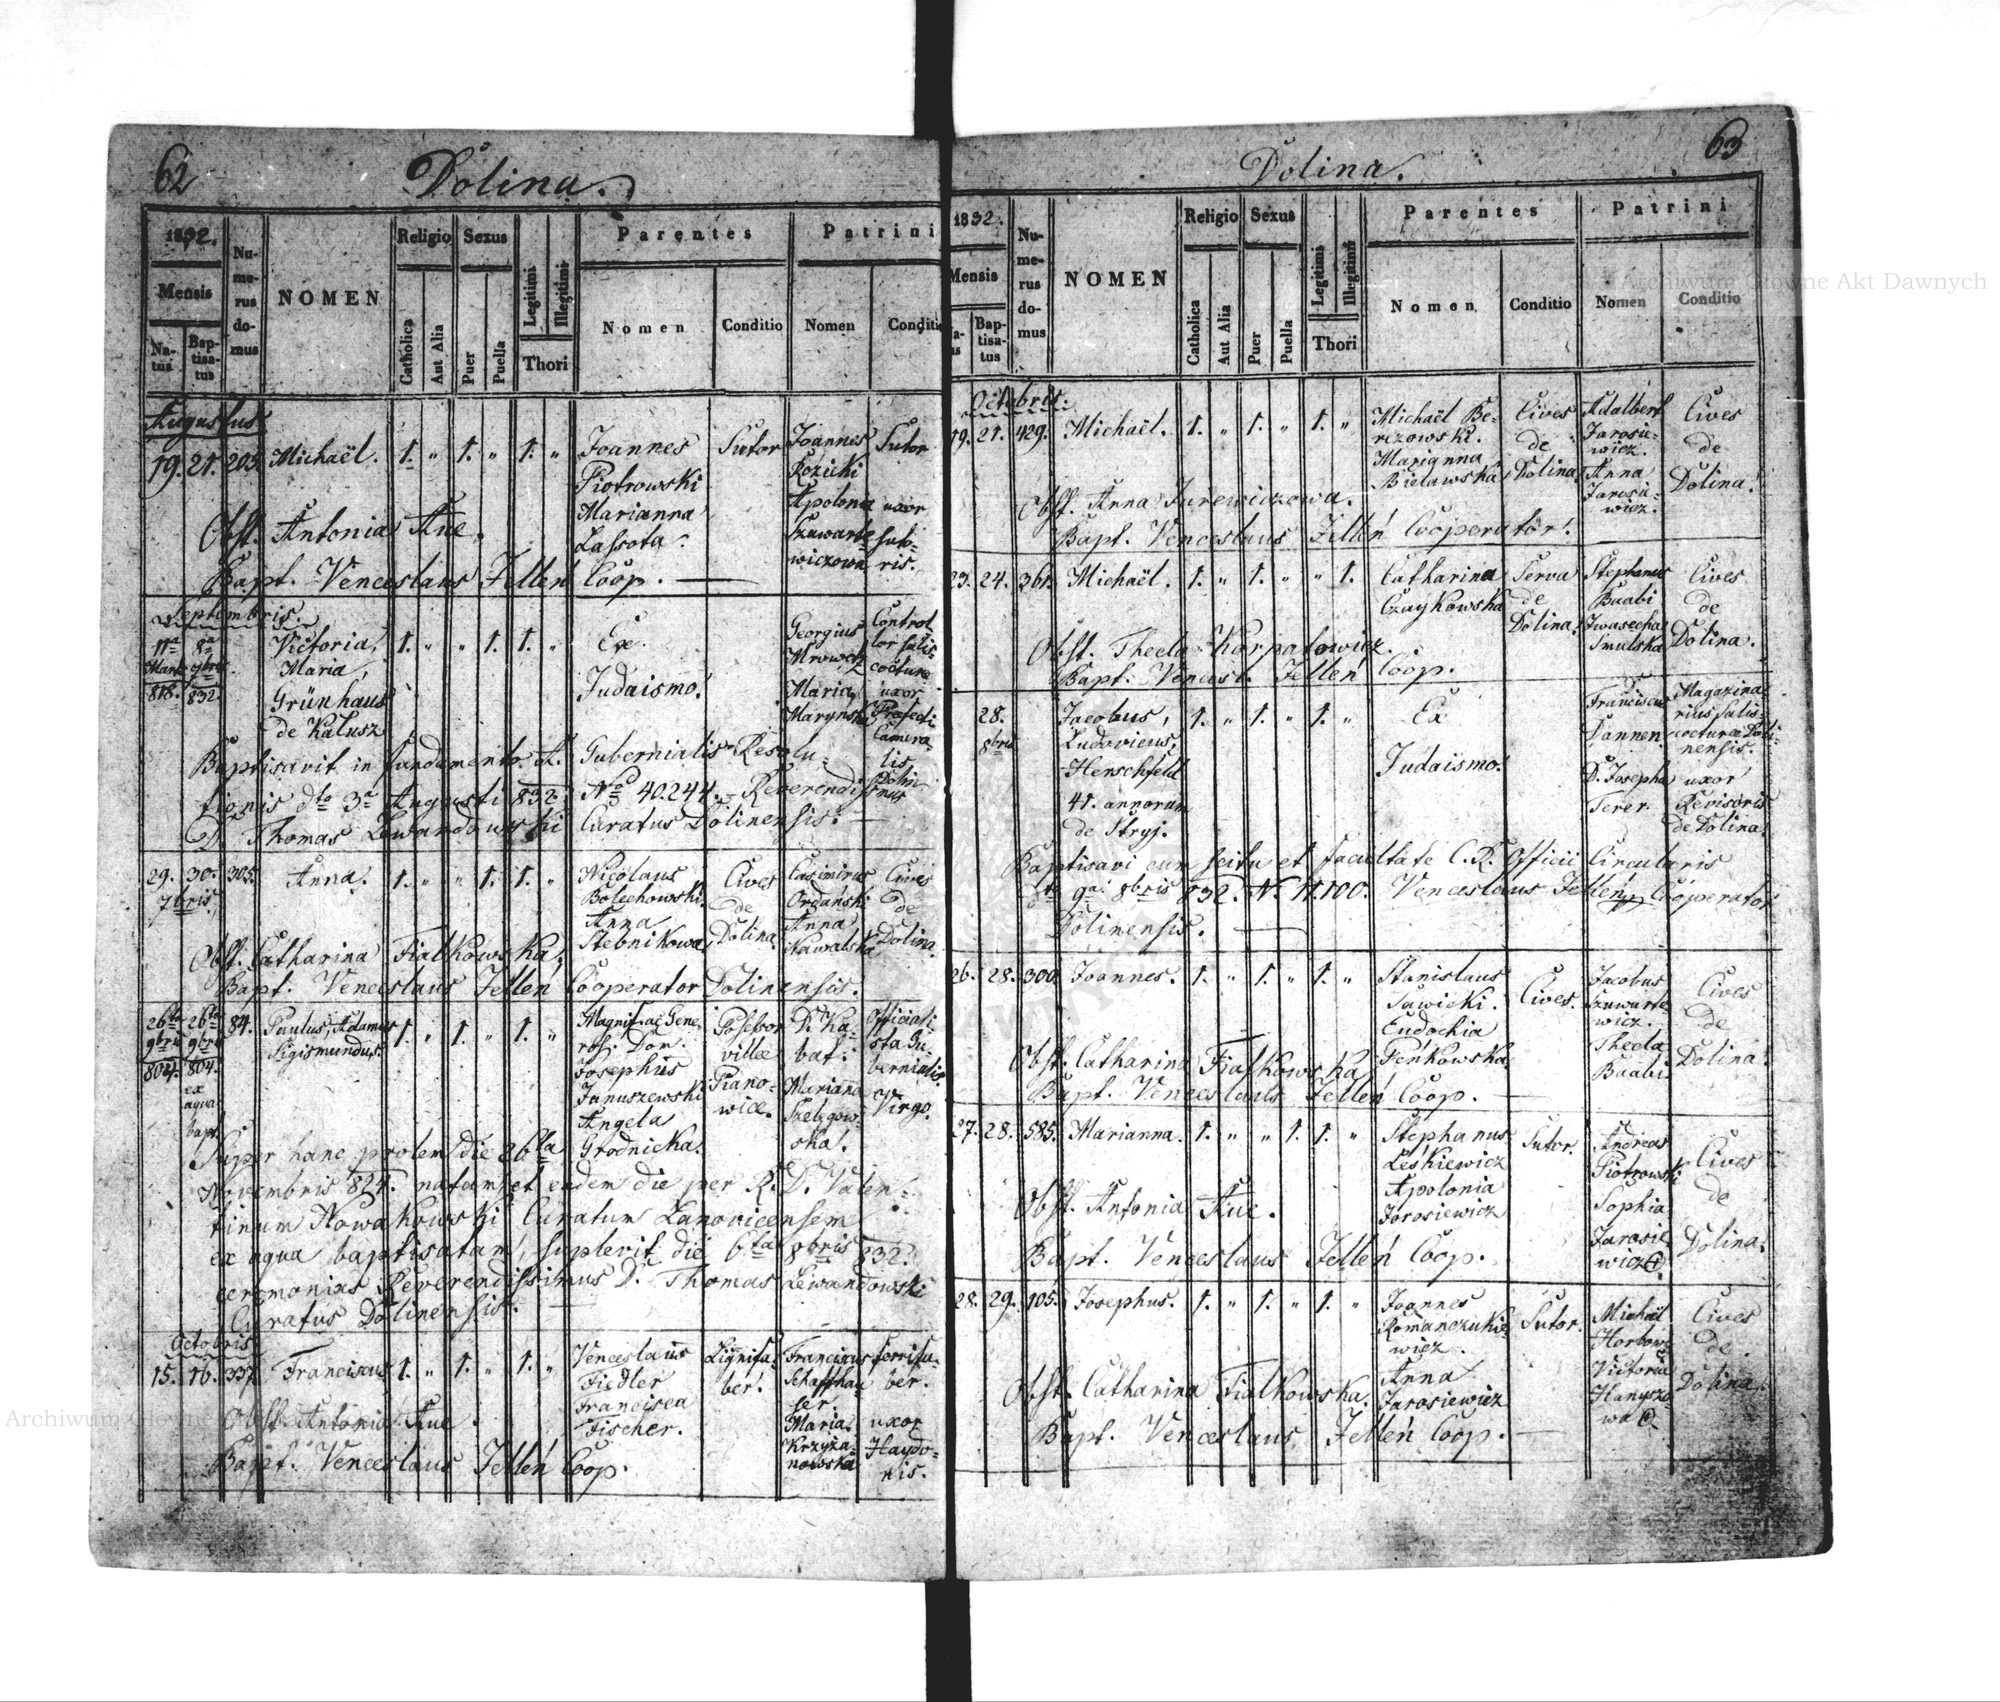 62
Dolina.
1832.
Mensis
Na-
tus
Bap-
tisa-
tus
Nu-
me-
rus
do-
mus
NOMEN
Religio
Catholica
Aut Alia
Sexus
Puer
Puella
Legitimi
Illegitimi
Thori
Parentes
Nomen
Conditio
Patrini
Nomen
Conditio
Augustus
19. 21. 205. Michaël. 1. " 1. " 1. "
Joannes
Piotrowski
Marianna
Lassota.
Sutor
Joannes
Rozicki
Apolona
Szuwarte
wiczowa
Sutor
uxor
suto-
ris.
Obst. Antonia Aue.
Bapt. Venceslaus Jellen Coop.
Septembris.
11a 8a
Mart. 9bris
818. 832
Victoria,
Maria,
Grünhaus
de Kałusz
1. " " 1. 1. "
Ex
Judaismo.
Georgius
Mrowetz
Maria
Maryńska
Control-
lor salis
cocturae
uxor
Praefecti
camera-
lis
Dolin
ensis
Baptisavit in fundamento A. Gubernialis Resolu-
tionis dto 3a Augusti 832. No 40.244. Reverendissimus
D. Thomas Lewandowski Curatus Dolinensis.
29. 30. 305. Anna. 1. " " 1. 1. "
7bris
Nicolaus
Bolechowski.
Anna
Stebnikowa
Cives
de
Dolina
Casimirus
Ordański
Anna
Nawalska
Cives
de
Dolina.
Obst. Catharina Fialkowska.
Bapt. Venceslaus Jellen Cooperator Dolinensis.
26ta 26ta 84. Paulus, Adamus
9bris 9bris Sigismundus.
804. 804.
ex
aqua
bapt.
1. " 1. " 1. "
Magnif. ac Gene-
ros. Don.
Josephus
Januszewski
Angela
Grodnicka.
Possessor
villae
Piano-
wice.
D. Ka-
bat:
Marianna
Szelegow-
ska.
Officiali-
sta Gu-
bernialis
Virgo.
Super hanc prolem die 26ta
Novembris 824. natam et eadem die per R. D. Valen-
tinum Nowakowski Curatum Lanovicensem
ex aqua baptisatam, suplevit die 6ta 8bris 832.
ceremonias Reverendissimus D. Thomas Lewandowski
Curatus Dolinensis.
Octobris
15. 16. 337. Franciscus 1. " 1. " 1. "
Venceslaus
Fiedler
Francisca
Fischer.
Lignifa-
ber.
Franciscus
Schaffhau
ser.
Maria
Krzyża-
nowska
ferrifa-
ber.
uxor
Haydo-
nis.
Obst. Antonia Aue.
Bapt. Venceslaus Jellen Coop.
63
Dolina.
1832.
Mensis
Na-
tus
Bap-
tisa-
tus
Nu-
me-
rus
do-
mus
NOMEN
Religio
Catholica
Aut Alia
Sexus
Puer
Puella
Legitimi
Illegitimi
Thori
Parentes
Nomen
Conditio
Patrini
Nomen
Conditio
Octobris.
19. 21. 429. Michaël. 1. " 1. " 1. "
Michaël Be-
rezowski.
Marianna
Bielawska
Cives
de
Dolina
Adalbert
Jarosie-
wicz.
Anna
Jarosie-
wicz.
Cives
de
Dolina.
Obst. Anna Jurewiczowa.
Bapt. Venceslaus Jellen Cooperator.
23. 24. 361. Michaël. 1. " 1. " " 1.
Catharina
Czaykowska
Serva
de
Dolina.
Stephanus
Baabi
Iwasecha
Smulska
Cives
de
Dolina.
Obst. Thecla Karpatowicz.
Bapt. Vencesl. Jellen Coop.
28.
8bris
Jacobus,
Ludovicus,
Herschfeld
41. annorum
de Stryj.
1. " 1. " 1. "
Ex
Judaismo.
Franciscus
Dannen
D. Josepha
Terer
Magazina-
rius salis-
cocturae Doli-
nensis.
uxor
Revisoris
de Dolina.
Baptisavi cum scitu et facultate C. R. Officii Circularis
dto 9a 8bris 832. N. 11.100. Venceslaus Jellen Cooperator
Dolinensis.
26. 28. 300. Joannes. 1. " 1. " 1. "
Stanislaus
Sawicki.
Eudochia
Peńkowska
Cives.
Jacobus
Szuwarte
wicz.
Thecla
Baabi.
Cives
de
Dolina.
Obst. Catharina Fialkowska
Bapt. Venceslaus Jellen Coop.
27. 28. 585. Marianna. 1. " " 1. 1. "
Stephanus
Leśkiewicz
Apolonia
Jarosiewicz
Sutor.
Andreas
Piotrowski
Sophia
Jarosie
wicz
Cives
de
Dolina.
Obst. Antonia Aue.
Bapt. Venceslaus Jellen Coop.
28. 29. 105. Josephus. 1. " 1. " 1. "
Joannes
Romanczukie-
wicz.
Anna
Jarosiewicz
Sutor.
Michaël
Horbow
Victoria
Hanyszo
wa
Cives
de
Dolina.
Obst. Catharina Fialkowska.
Bapt. Venceslaus Jellen Coop.
Archiwum Główne Akt Dawnych
Archiwum Główne